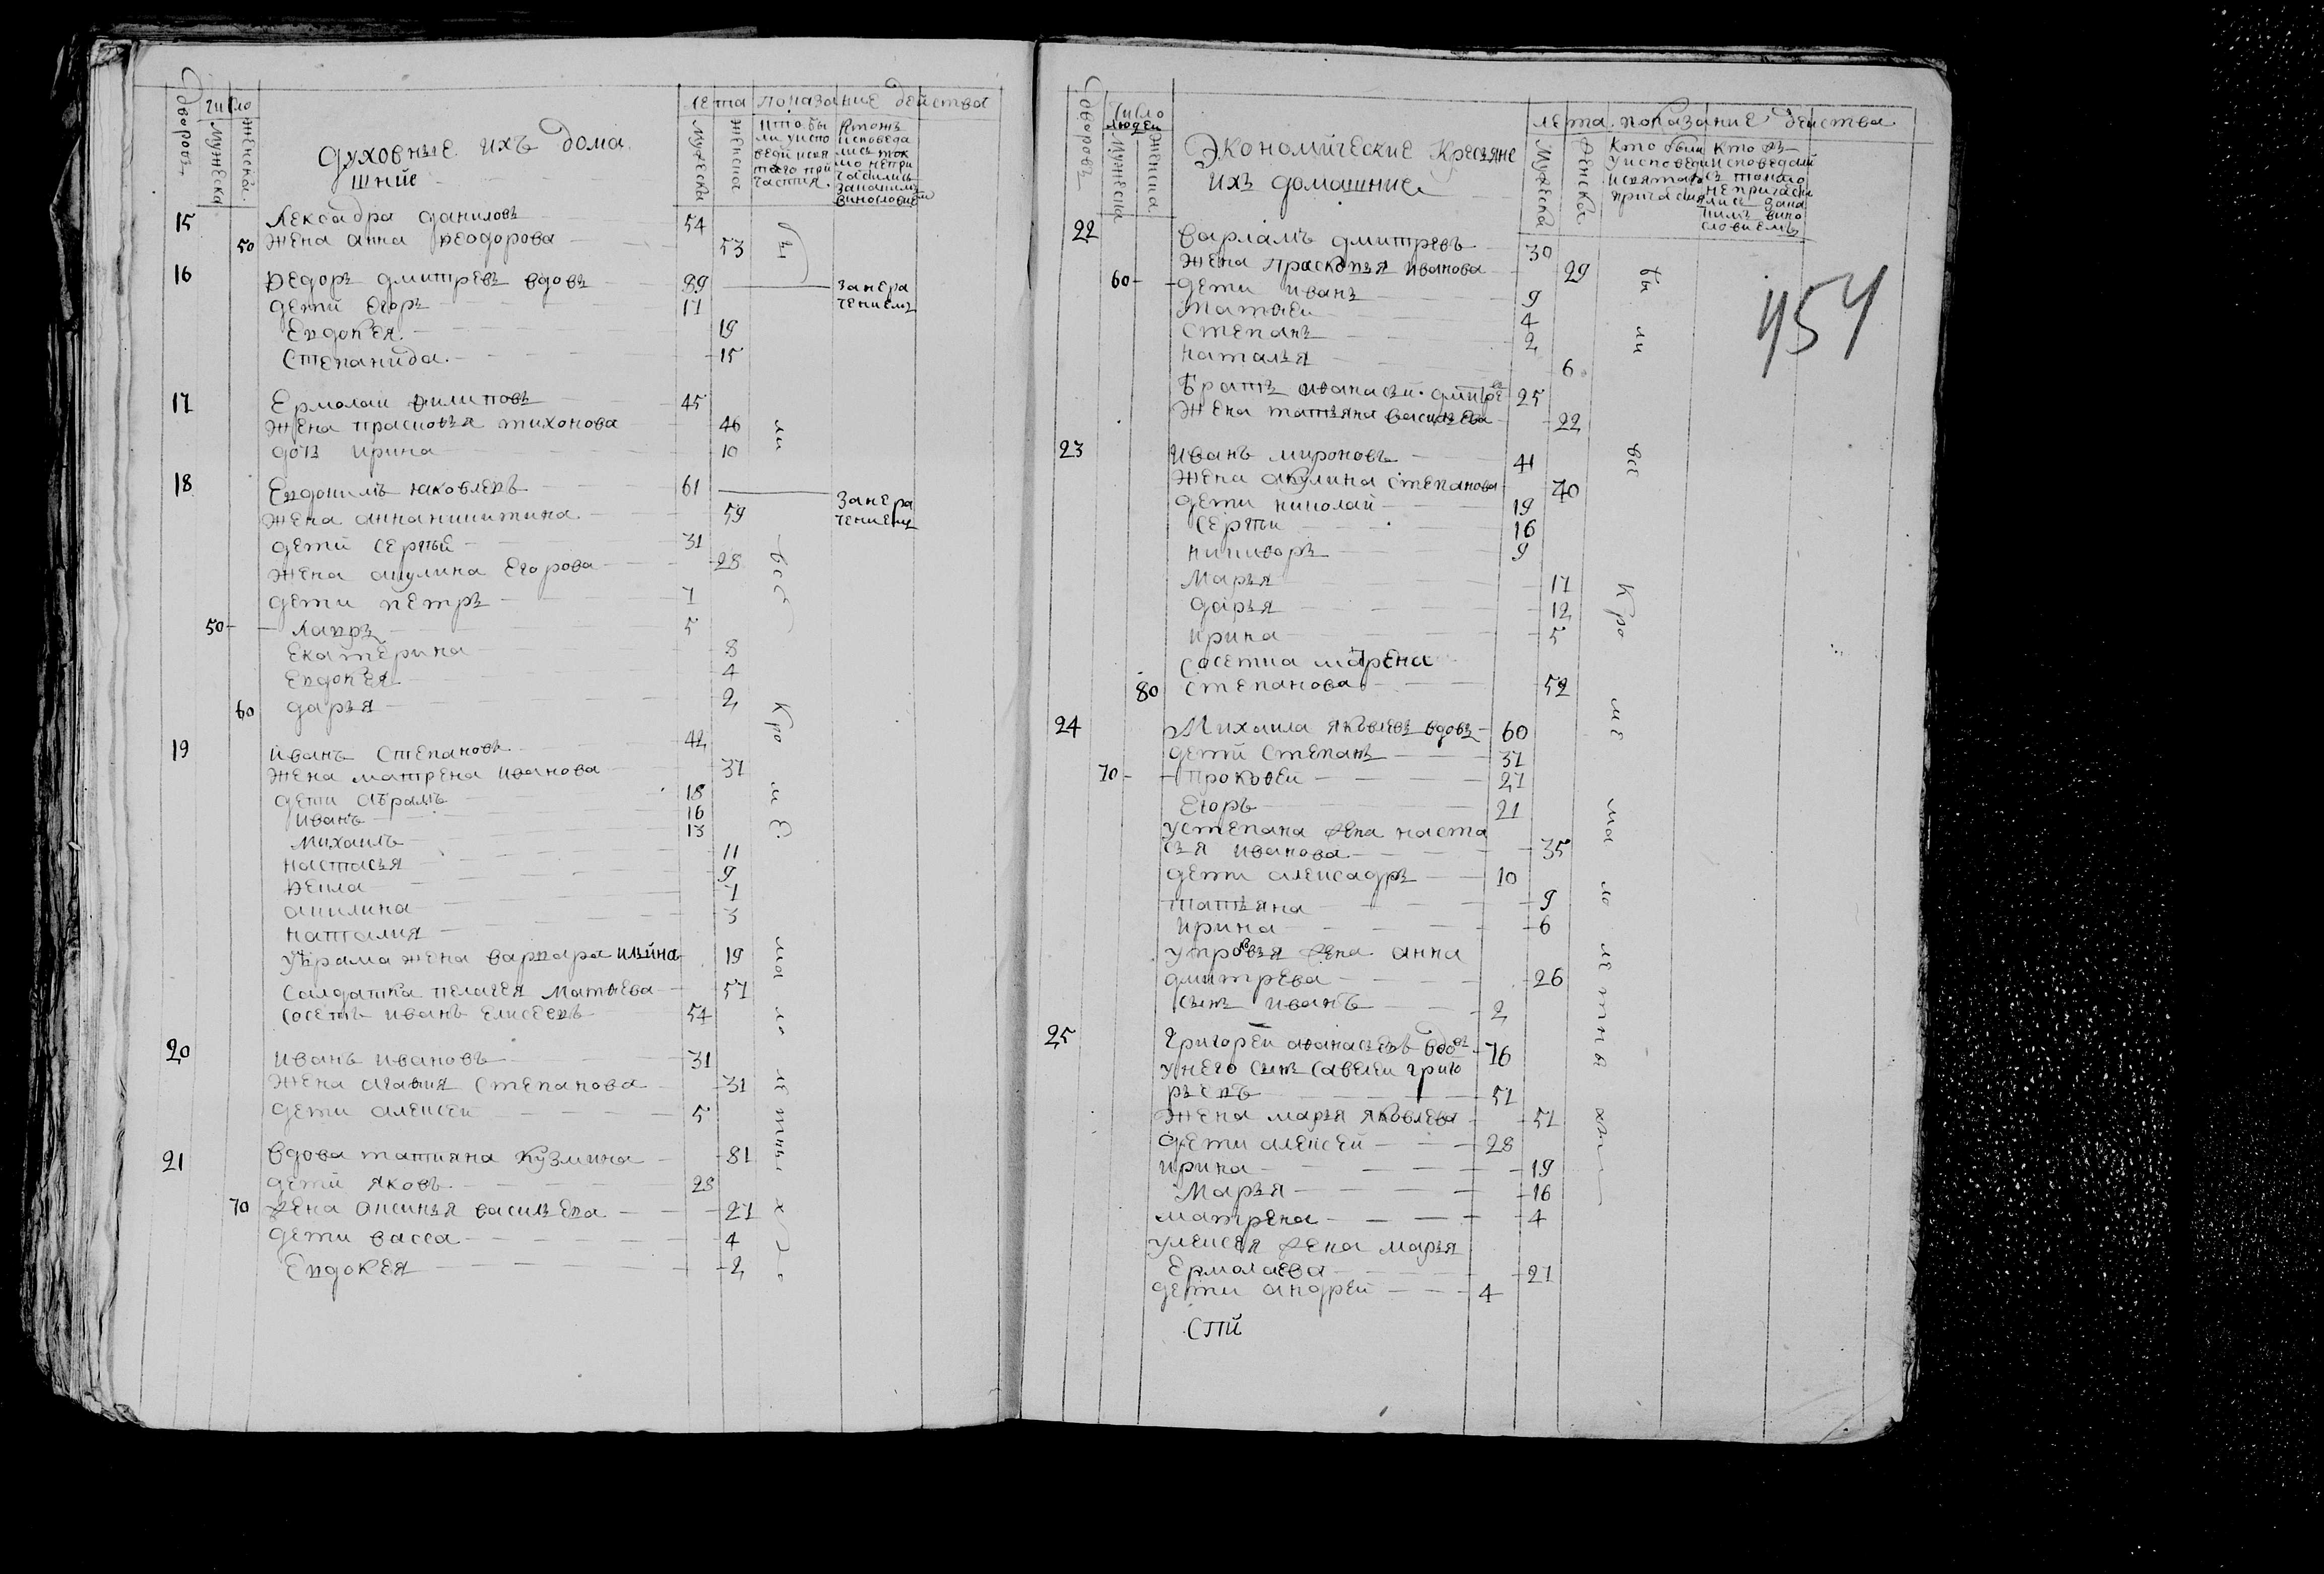 дворовъ
число
мужеска
женска
духовные ихъ дома
шние
лета показание действа
мужеска
женска
кто бы
ли уиспо
веди исвя
таго при
частия.
ктожъ
исповеда
лись ток
мо непри
частились
закакимъ
винословиемъ
15 Лексадра даниловъ 54
50 жена анна Ѳеодорова 53
16 Ѳедоръ дмитревъ вдовъ 89 занера
дети Егоръ 17 чениемъ
Евдокея 19
Степанида 15
17 Ермолаи Филиповъ 45
жена прасковья тихонова 46
дочь ирина 10
18 Евдокимъ яковлевъ 61 занера
жена анна никитина 59 чениемъ
дети сергьй 31
жена акулина Егорова 28
дети петръ 7
50 лавръ 5
Екатерина 8
Евдокея 4
60 дарья 2
19 иванъ степановъ 42
жена матрена иванова 37
дети абрамъ 18
иванъ 16
михаилъ 13
настасья 11
Ѳекла 9
акилина 7
наталия 3
уабрама жена варвара илйина 19
солдатка пелагея матѳева 57
соседъ иванъ Елисеевъ 54
20 иванъ ивановъ 31
жена агаѳия степанова 31
дети алексеи 5
21 вдова татияна кузмина 81
дети яковъ 28
70 жена аксинья васильева 27
дети васса 4
Евдокея 2
бы
ли
все
кро
ме
ма
ло
ле
тны
хъ
дворовъ
число
людеи
мужеска
женска
Экономические Кресьяне
ихъ домашние
лета показание действа
мужеска
женска
кто были
уисповеди
исвятаго
причастия
кто жъ
исповедали
сь токмо
непричасти
лись зака
кимъ вино
словиемъ
454
22 варламъ дмитревъ 30
жена прасковья иванова 29
60 дети иванъ 9
матѳеи 4
степанъ 2
наталья 6
братъ аѳанасеи дмитрев 25
жена татьяна васильева 22
23 иванъ мироновъ 41
жена акулина степанова 40
дети николаи 19
сергеи 16
никиѳоръ 9
марья 17
дарья 12
ирина 5
соседка матрена
80 степанова 52
24 михаила яковлевъ вдовъ 60
дети степанъ 37
70 прокоѳеи 27
Егоръ 21
устепана жена наста
сья иванова 35
дети алексадръ 10
татьяна 9
ирина 6
упрокоѳья жена анна
дмитрева 26
сынъ иванъ 2
25 григореи аѳанасьевъ вдовъ 76
унего сынъ савелеи григо
рьевъ 51
жена марья яковлева 51
дети алексеи 28
ирина 19
марья 16
матрена 4
улексея жена марья
Ермолаева 27
дети андреи 4
бы
ли
все
кро
ме
ма
ло
ле
тны
хъ